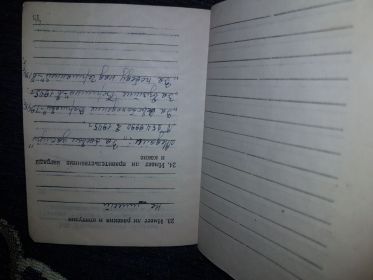 23. Имеет ли ранения и контузии
не имеет
24. Имеет ли правительственные награды
и какие
Медали: "За боевые заслуги"
1945г.
"За освобождение Варшавы"
"За взятие Берлина" 1945г.
"За победу над Германией"